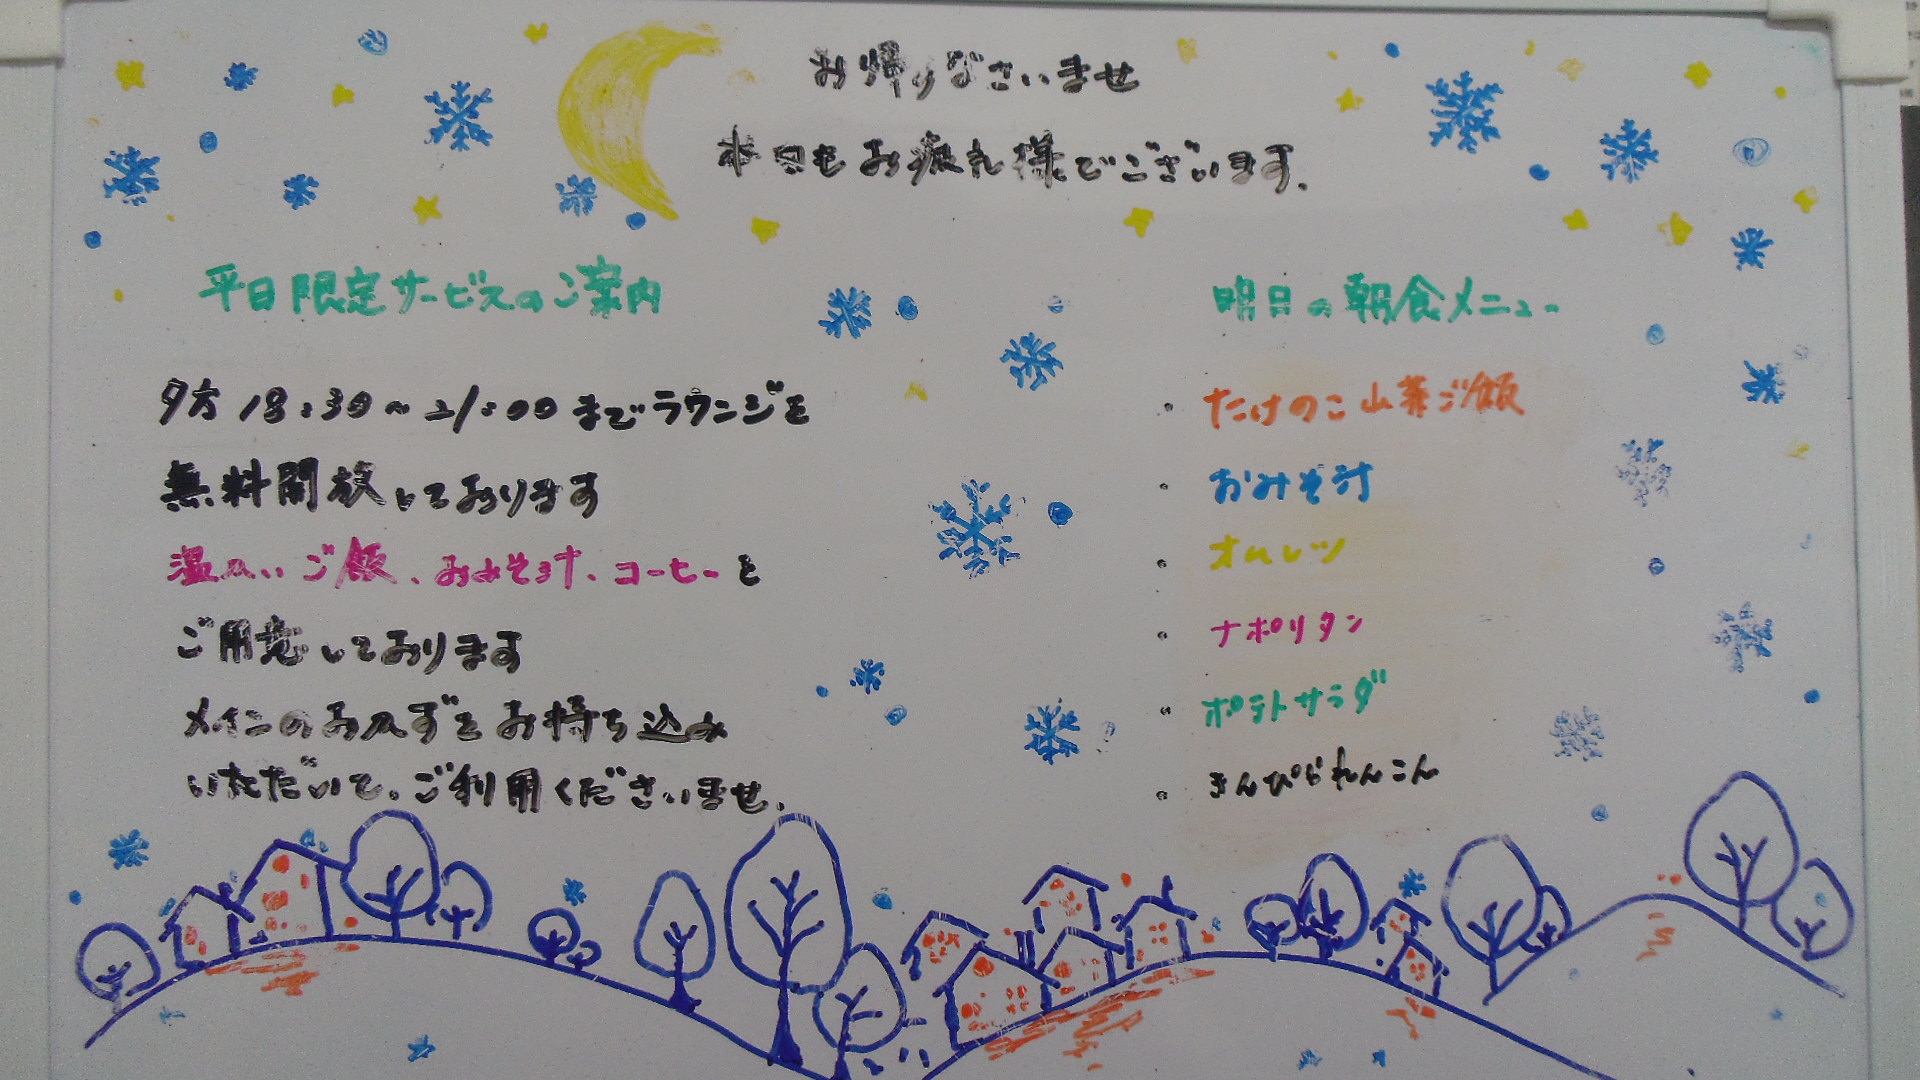 お帰りなさいませ
本日もお疲れ様でございます.
平日限定サービスのご案内
夕方18:30~21:00までラウンジを
無料開放しております
温かいご飯、おみそ汁、コーヒーを
ご用意しております
メインのおかずをお持ち込み
いただいて、ご利用くださいませ.
明日の朝食メニュー
・たけのこ山菜ご飯
・おみそ汁
・オムレツ
・ナポリタン
・ポテトサラダ
・きんぴられんこん